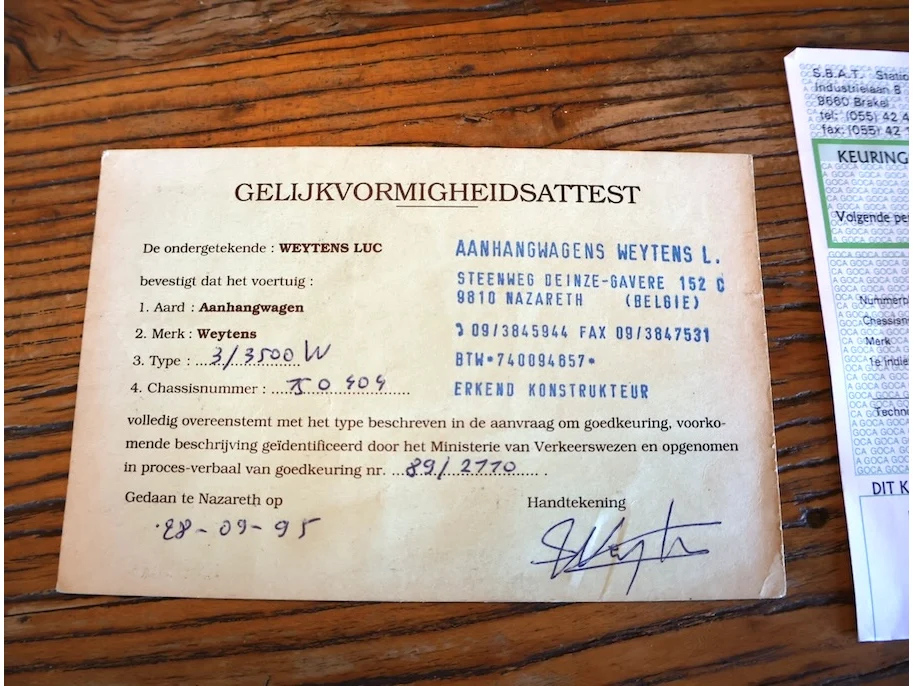 GELIJKVORMIGHEIDSATTEST
De ondergetekende : WEYTENS LUC
bevestigt dat het voertuig :
1. Aard : Aanhangwagen
2. Merk : Weytens
3. Type : 3/3500 W
4. Chassisnummer :
AANHANGWAGENS WEYTENS L.
STEENWEG DEINZE-GAVERE 152 C
9810 NAZARETH (BELGIE)
09/3845944 FAX 09/3847531
BTW•740094657•
ERKEND KONSTRUKTEUR
volledig overeenstemt met het type beschreven in de aanvraag om goedkeuring, voorko-
mende beschrijving geïdentificeerd door het Ministerie van Verkeerswezen en opgenomen
in proces-verbaal van goedkeuring nr. 89/2770
Gedaan te Nazareth op
28-09-95
Handtekening
S.B.A.T. Statio
Industrielaan 8
9660 Brakel
tel: (055) 42 4
fax: (055) 42 1
KEURING
Volgende pe
Nummerpl
Chassisn
Merk
1e indie
Techn
DIT K